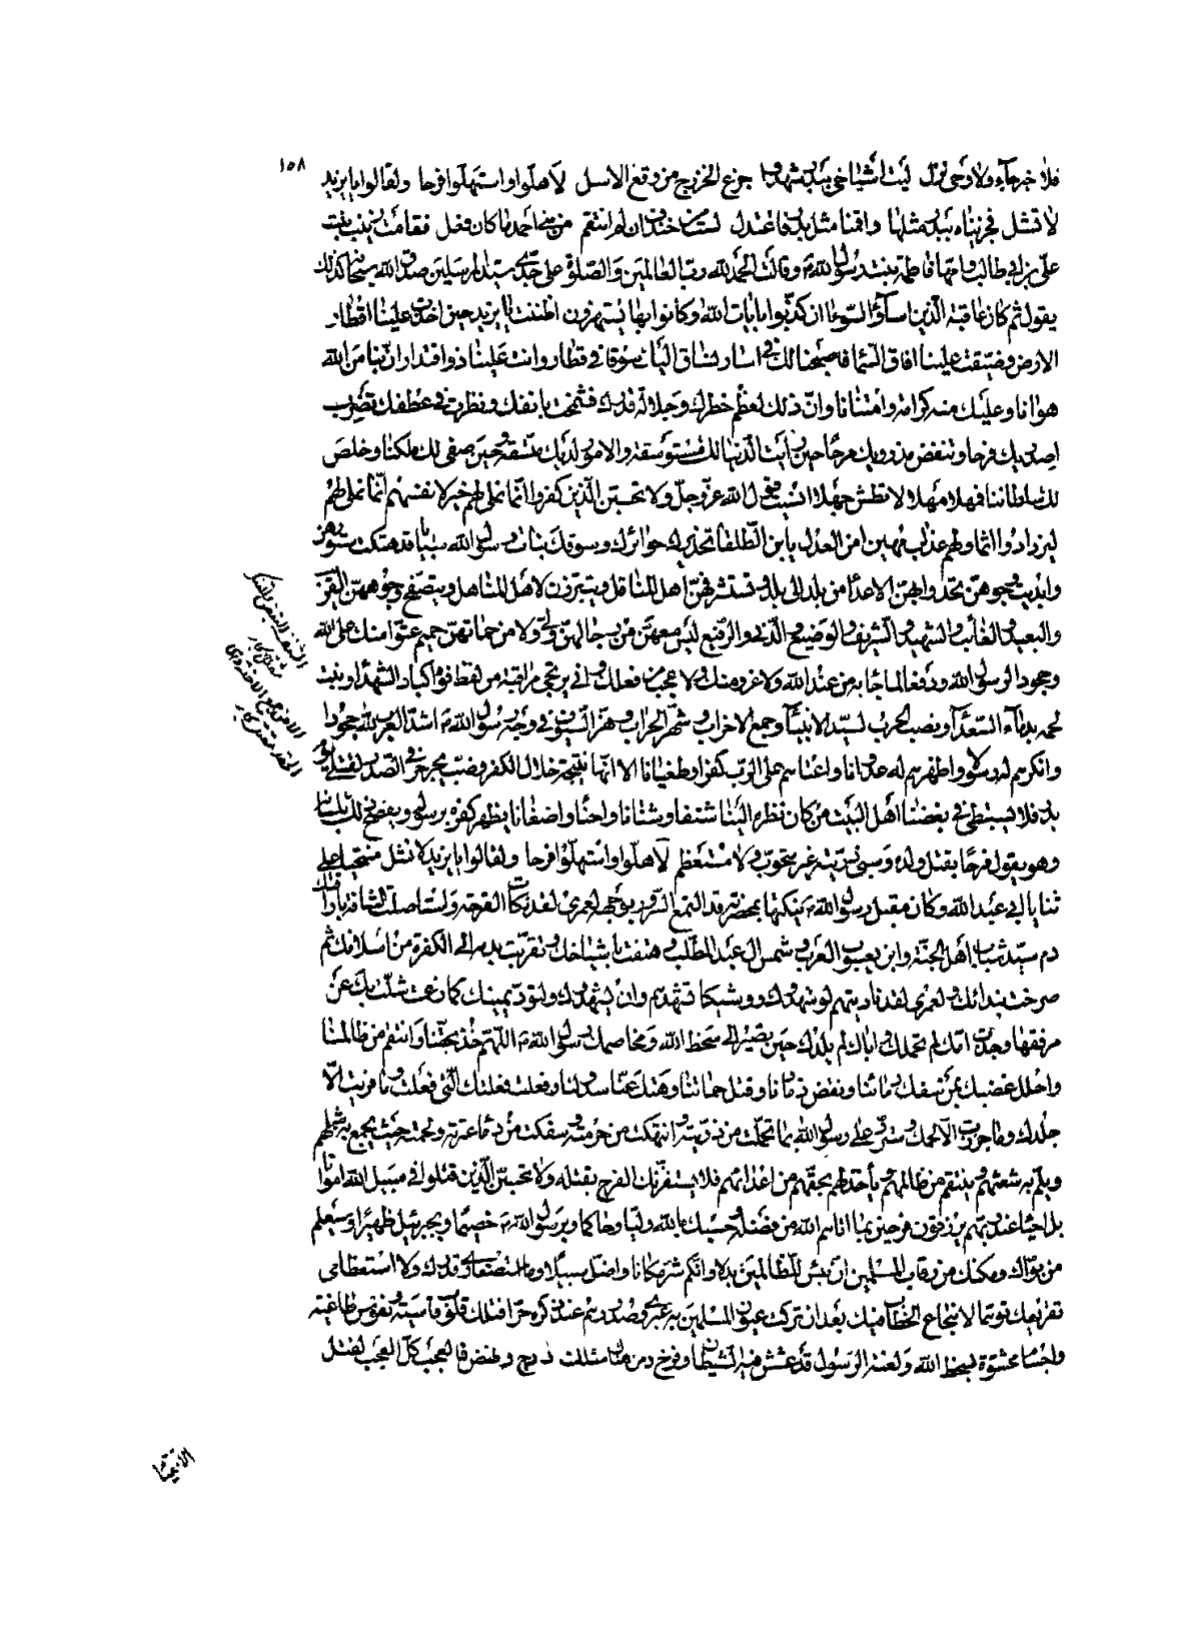 ١٥٨
فلا خبر جاء ولا وحى نزل ليت أشياخى ببدر شهدوا جزع الخزرج من وقع الاسل لأهلّوا واستهلّوا فرحا ولقالوا يا يزيد
لا تشل فجزيناه ببدر مثلها واقمنا مثل بدر فاعتدل لست من خندف ان لم انتقم من بنى أحمد ما كان فعل فقامت زينب بنت
على بن ابى طالب وامها فاطمة بنت رسول الله وقالت الحمد لله رب العالمين والصلوة على جدّى سيّد المرسلين صدق الله سبحانه كذلك
يقول ثم كان عاقبة الّذين اساؤا السّوءا ان كذّبوا بايات الله وكانوا بها يستهزؤن اظننت يا يزيد حين اخذت علينا اقطار
الارض وضيّقت علينا افاق السّماء فاصبحنا لك فى اسار نساق اليك سوقا فى قطار وانت علينا ذو اقتدار انّ بنا من الله
هوانا وعليك منه كرامة وامتنانا وانّ ذلك لعظم خطرك وجلالة قدرك فشمخت بانفك ونظرت فى عطفك تضرب
اصدريك فرحا وتنفض مذرويك مرحا حين رأيت الدّنيا لك مستوسقة والامور لديك متّسقة وحين صفى لك ملكنا وخلص
لك سلطاننا فمهلا مهلا لا تطش جهلا انسيت قول الله عزّ وجلّ ولا تحسبنّ الّذين كفروا انّما نملى لهم خير لانفسهم انّما نملى لهم
ليزدادوا اثما ولهم عذاب مهين امن العدل يا بن الطّلقاء تخذيرك حرائرك وسوقك بنات رسول الله سبايا قد هتكت ستورهنّ
وابديت وجوههنّ تحدو بهنّ الاعداء من بلد الى بلد وتستشرفهنّ اهل المناقل ويتبرّزن لاهل المناهل ويتصفّح وجوههنّ القريب
والبعيد والغائب والشهيد والشريف والوضيع والدّنى والرفيع ليس معهنّ من رجالهنّ ولى ولا من حماتهنّ حميم عتوّا منك على الله
وجحودا لرسول الله ودفعا لما جاء به من عند الله ولا غرو منك ولا عجب من فعلك وانى يرتجى مراقبة من لفظ فوه اكباد الشهداء ونبت
لحمه بدماء السّعداء ونصب الحرب لسيّد الانبياء وجمع الاحزاب وشهّر الحراب وهزّ السّيوف فى وجه رسول الله اشدّ العرب لله جحودا
وانكرهم له رسولا واظهرهم له عدوانا واعتاهم على الربّ كفرا وطغيانا الا انّها نتيجة خلال الكفر وضبّ يجرجر فى الصّدر لقتلى يوم
بدر فلا يستبطئ فى بغضنا أهل البيت من كان نظره الينا شنفا وشنانا واحنا واضغانا يظهر كفره برسوله ويفصح ذلك بلسانه
وهو يقول فرحا بقتل ولده وسبى ذرّيته غير متحوّب ولا مستعظم لأهلّوا واستهلّوا فرحا ولقالوا يا يزيد لا تشل منتحيا على
ثنايا ابى عبد الله وكان مقبل رسول الله ينكتها بمخصرته قد التمع السّرور بوجهه لعمرى لقد نكأت القرحة واستاصلت الشافة باراقتك
دم سيّد شباب أهل الجنّة وابن يعسوب العرب وشمس ال عبد المطّلب وهتفت باشياخك وتقرّبت بدمه الى الكفرة من اسلافك ثم
صرخت بندائك ولعمرى لقد ناديتهم لو شهدوك ووشيكا تشهدهم وان يشهدوك ولتودّ يمينك كما زعمت شلّت بك عن
مرفقها وجذّت امّك لم تحملك واباك لم يلدك حين تصير الى سخط الله ومخاصمك رسول الله اللهمّ خذ بحقّنا وانتقم من ظالمنا
واحلل غضبك بمن سفك دمائنا ونقض ذمامنا وقتل حماتنا وهتك عنّا سدولنا وفعلت فعلتك الّتى فعلت وما فريت الّا
جلدك وما جززت الّا لحمك وسترد على رسول الله بما تحمّلت من ذرّيته وانتهكت من حرمته وسفكت من دماء عترته ولحمته حيث يجمع به شملهم
ويلمّ به شعثهم وينتقم من ظالمهم ويأخذ لهم بحقّهم من اعدائهم فلا يستفزّنّك الفرح بقتله ولا تحسبنّ الّذين قتلوا فى سبيل الله امواتا
بل احياء عند ربّهم يرزقون فرحين بما اتاهم الله من فضله وحسبك بالله وليّا وحاكما وبرسول الله خصيما وبجبرئيل ظهيرا وسيعلم
من بوّاك ومكّنك من رقاب المسلمين ان بئس للظّالمين بدلا وانّكم شرّ مكانا واضلّ سبيلا وما استصغارى قدرك ولا استعظامى
تقريعك توهّما لانتجاع الخطاب فيك بعد ان تركت عيون المسلمين به عبرى وصدورهم عند ذكره حرّا فتلك قلوب قاسية ونفوس طاغية
واجسام محشوّة بسخط الله ولعنة الرّسول قد عشّش فيه الشّيطان وفرّخ ومن هناك مثلك درج ونهض فالعجب كلّ العجب لقتل
الاتقياء